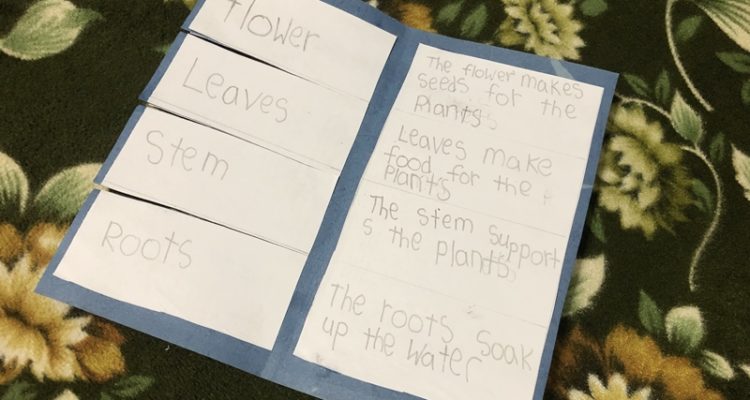 Flower
Leaves
Stem
Roots
The flower makes
seeds for the
Plants
Leaves make
food for the
Plants
The stem support
s the plants
The roots soak
up the water